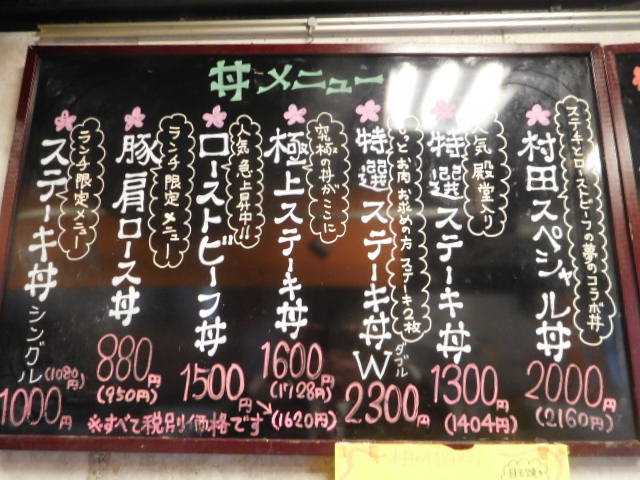 丼メニュー
ステーキとローストビーフの夢のコラボ丼
村田スペシャル丼
2000円
(2160円)
人気殿堂入り
特選ステーキ丼
1300円
(1404円)
もっとお肉お求めの方ステーキ2枚
特選ステーキ丼Wダブル
2300円
究極の丼がここに
極上ステーキ丼
1600円
(1728円)
人気急上昇中!!
ローストビーフ丼
1500円
(1620円)
ランチ限定メニュー
豚肩ロース丼
880円
(950円)
ランチ限定メニュー
ステーキ丼シングル
(1080円)
1000円
※すべて税別価格です